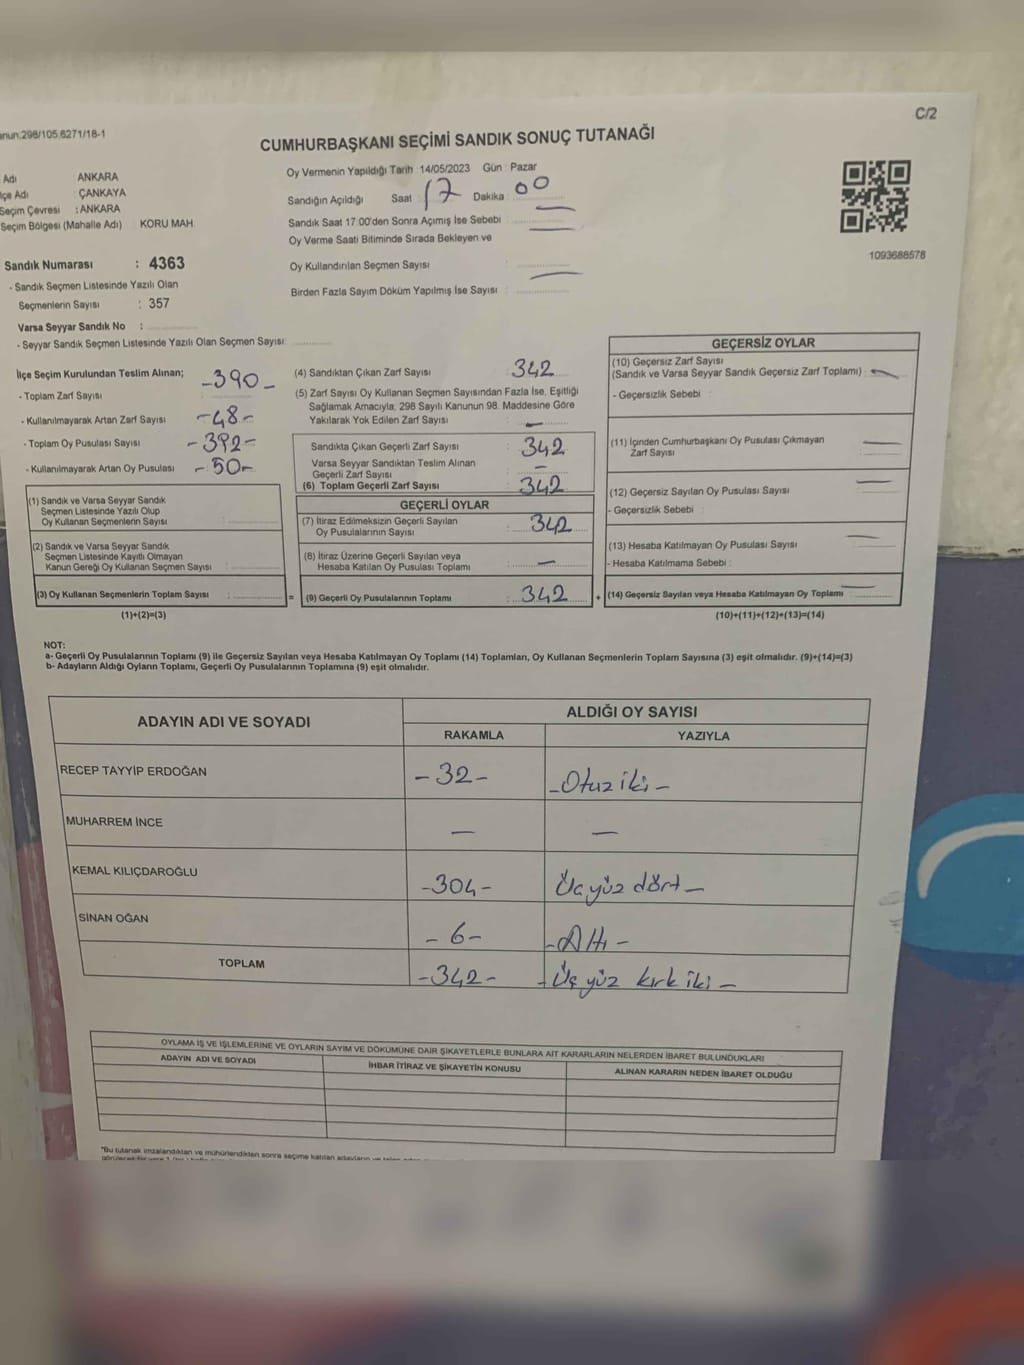 C/2
298/105.6271/18-1
CUMHURBAŞKANI SEÇİMİ SANDIK SONUÇ TUTANAĞI
Adı ANKARA
Adı : ÇANKAYA
Seçim Çevresi : ANKARA
Seçim Bölgesi (Mahalle Adı) : KORU MAH
Sandık Numarası : 4363
- Sandık Seçmen Listesinde Yazılı Olan
Seçmenlerin Sayısı : 357
Varsa Seyyar Sandık No :
- Seyyar Sandık Seçmen Listesinde Yazılı Olan Seçmen Sayısı:
Oy Vermenin Yapıldığı Tarih : 14/05/2023 Gün : Pazar
Sandığın Açıldığı Saat : 17 Dakika : 00
Sandık Saat 17.00'den Sonra Açımış İse Sebebi : —
Oy Verme Saati Bitiminde Sırada Bekleyen ve
Oy Kullandırılan Seçmen Sayısı : —
Birden Fazla Sayım Döküm Yapılmış İse Sayısı :
1093688578
İlçe Seçim Kurulundan Teslim Alınan;
- Toplam Zarf Sayısı : -390-
- Kullanılmayarak Artan Zarf Sayısı : -48-
- Toplam Oy Pusulası Sayısı : -392-
- Kullanılmayarak Artan Oy Pusulası : -50-
(1) Sandık ve Varsa Seyyar Sandık
Seçmen Listesinde Yazılı Olup
Oy Kullanan Seçmenlerin Sayısı :
(2) Sandık ve Varsa Seyyar Sandık
Seçmen Listesinde Kayıtlı Olmayan
Kanun Gereği Oy Kullanan Seçmen Sayısı :
(3) Oy Kullanan Seçmenlerin Toplam Sayısı : =
(1)+(2)=(3)
(4) Sandıktan Çıkan Zarf Sayısı : 342
(5) Zarf Sayısı Oy Kullanan Seçmen Sayısından Fazla İse, Eşitliği
Sağlamak Amacıyla, 298 Sayılı Kanunun 98. Maddesine Göre
Yakılarak Yok Edilen Zarf Sayısı : —
Sandıkta Çıkan Geçerli Zarf Sayısı : 342
Varsa Seyyar Sandıktan Teslim Alınan
Geçerli Zarf Sayısı : —
(6) Toplam Geçerli Zarf Sayısı : 342
GEÇERLİ OYLAR
(7) İtiraz Edilmeksizin Geçerli Sayılan
Oy Pusulalarının Sayısı : 342
(8) İtiraz Üzerine Geçerli Sayılan veya
Hesaba Katılan Oy Pusulası Toplamı : —
(9) Geçerli Oy Pusulalarının Toplamı : 342 +
GEÇERSİZ OYLAR
(10) Geçersiz Zarf Sayısı
(Sandık ve Varsa Seyyar Sandık Geçersiz Zarf Toplamı) : —
- Geçersizlik Sebebi :
(11) İçinden Cumhurbaşkanı Oy Pusulası Çıkmayan
Zarf Sayısı : —
(12) Geçersiz Sayılan Oy Pusulası Sayısı : —
- Geçersizlik Sebebi :
(13) Hesaba Katılmayan Oy Pusulası Sayısı : —
- Hesaba Katılmama Sebebi :
(14) Geçersiz Sayılan veya Hesaba Katılmayan Oy Toplamı : —
(10)+(11)+(12)+(13)=(14)
NOT:
a- Geçerli Oy Pusulalarının Toplamı (9) ile Geçersiz Sayılan veya Hesaba Katılmayan Oy Toplamı (14) Toplamları, Oy Kullanan Seçmenlerin Toplam Sayısına (3) eşit olmalıdır. (9)+(14)=(3)
b- Adayların Aldığı Oyların Toplamı, Geçerli Oy Pusulalarının Toplamına (9) eşit olmalıdır.
ADAYIN ADI VE SOYADI
ALDIĞI OY SAYISI
RAKAMLA YAZIYLA
RECEP TAYYİP ERDOĞAN -32- -Otuz iki-
MUHARREM İNCE — —
KEMAL KILIÇDAROĞLU -304- Üçyüz dört-
SİNAN OĞAN -6- -Altı-
TOPLAM -342- -Üç yüz kırk iki-
OYLAMA İŞ VE İŞLEMLERİNE VE OYLARIN SAYIM VE DÖKÜMÜNE DAİR ŞİKAYETLERLE BUNLARA AİT KARARLARIN NELERDEN İBARET BULUNDUKLARI
ADAYIN ADI VE SOYADI İHBAR İTİRAZ VE ŞİKAYETİN KONUSU ALINAN KARARIN NEDEN İBARET OLDUĞU
*Bu tutanak imzalandıktan ve mühürlendikten sonra seçime katılan adayların ve